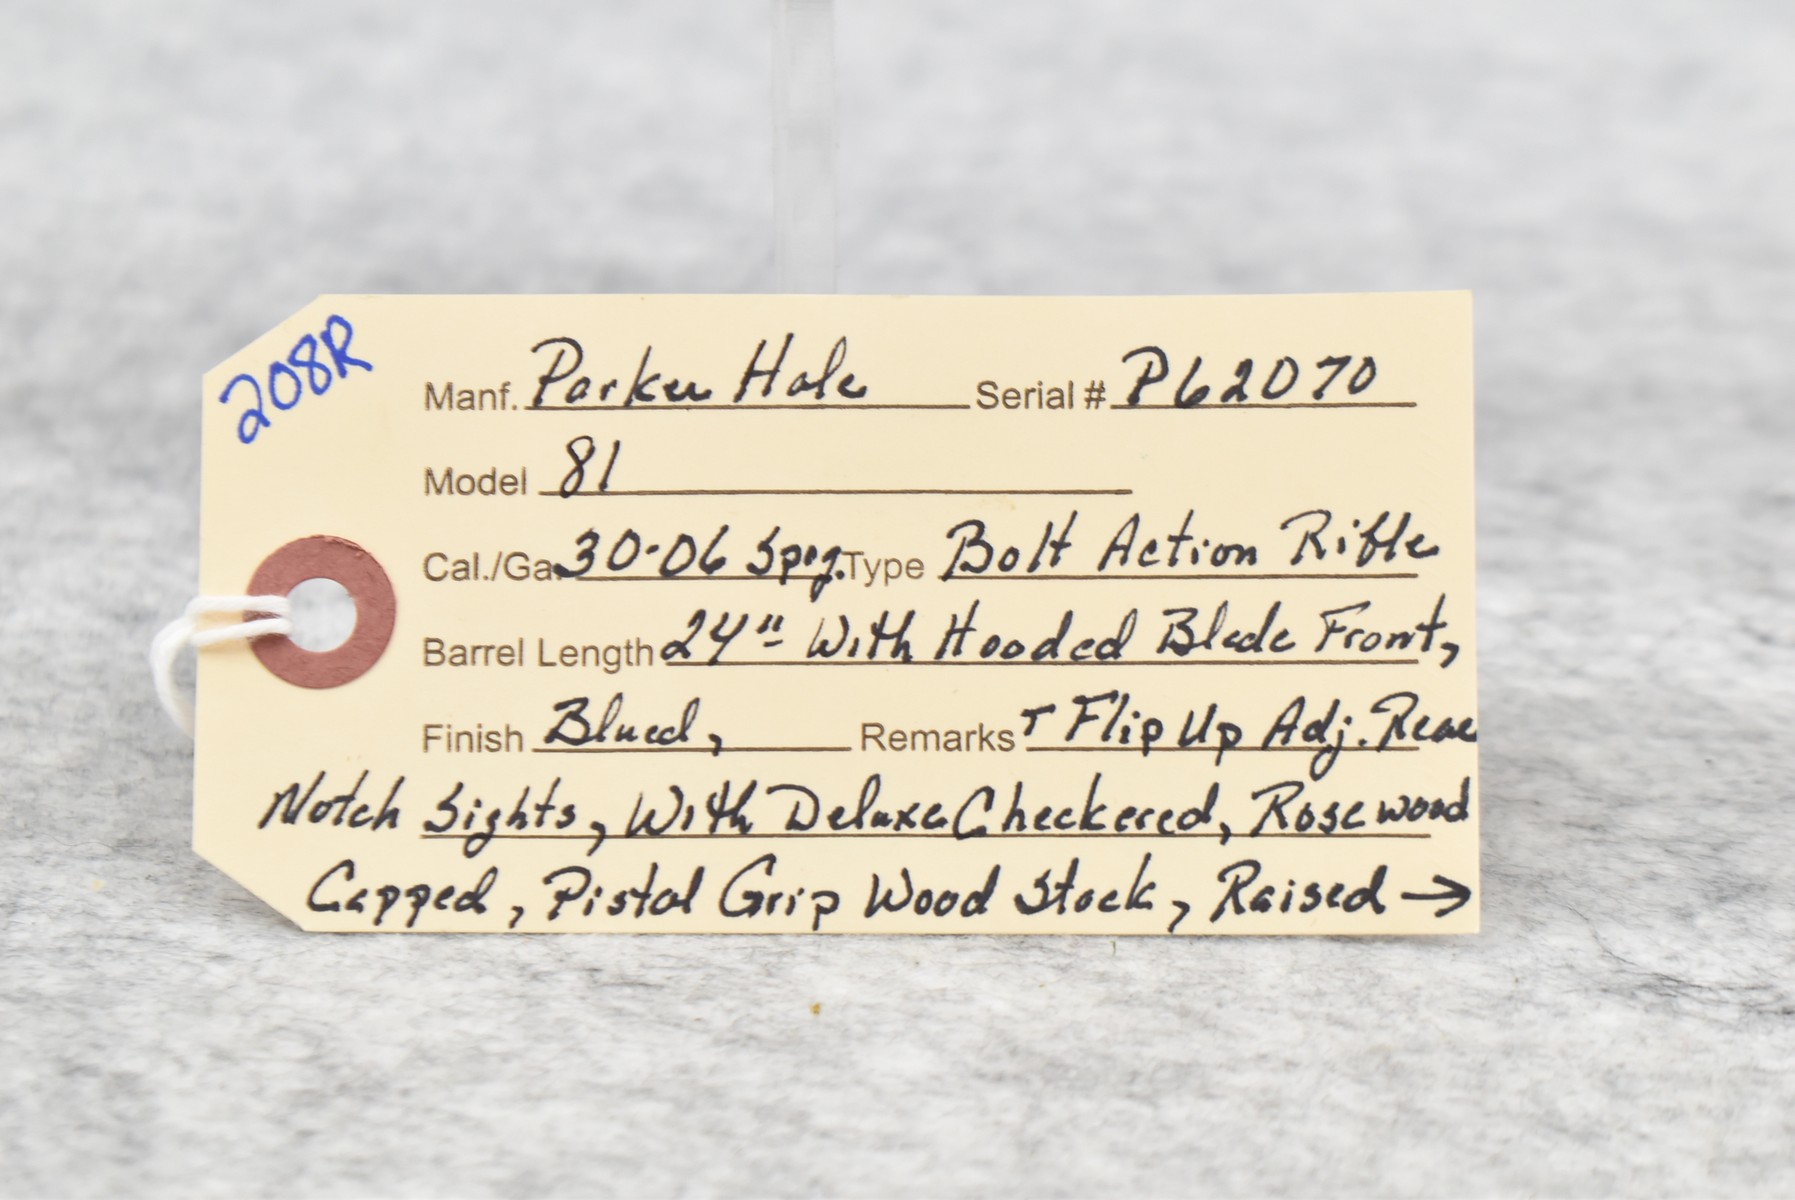 208R
Manf. Parker Hale Serial # P62070
Model 81
Cal./Ga. 30-06 Sprg. Type Bolt Action Rifle
Barrel Length 24" With Hooded Blade Front,
Finish Blued, Remarks + Flip Up Adj. Rear
Notch Sights, With Deluxe Checkered, Rosewood
Capped, Pistol Grip Wood Stock, Raised →